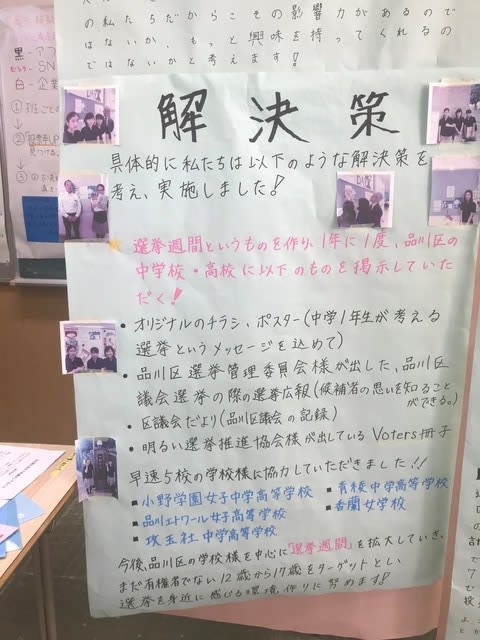 の私たちだからこその影響力があるので
はないか、もっと興味を持ってくれるの
ではないかと考えます!
解決策
具体的に私たちは以下のような解決策を
考え、実施しました!
選挙週間というものを作り、1年に1度、品川区の
中学校・高校に以下のものを掲示していた
だく!
・オリジナルのチラシ、ポスター(中学1年生が考える
選挙というメッセージを込めて)
・品川区選挙管理委員会様が出した、品川区
議会選挙の際の選挙広報(候補者の思いを知ること
ができる。)
・区議会だより(品川区議会の記録)
・明るい選挙推進協会様が出しているVoters冊子
早速5校の学校様に協力していただきました!!
■小野学園女子中学高等学校
■青稜中学高等学校
■品川エトワール女子高等学校
■香蘭女学校
■攻玉社中学高等学校
今後、品川区の学校様を中心に「選挙週間」を拡大していき、
まだ有権者でない12歳から17歳をターゲットとし、
選挙を身近に感じる環境作りに努めます!
黒-アフ
白-企業
①班ごとの